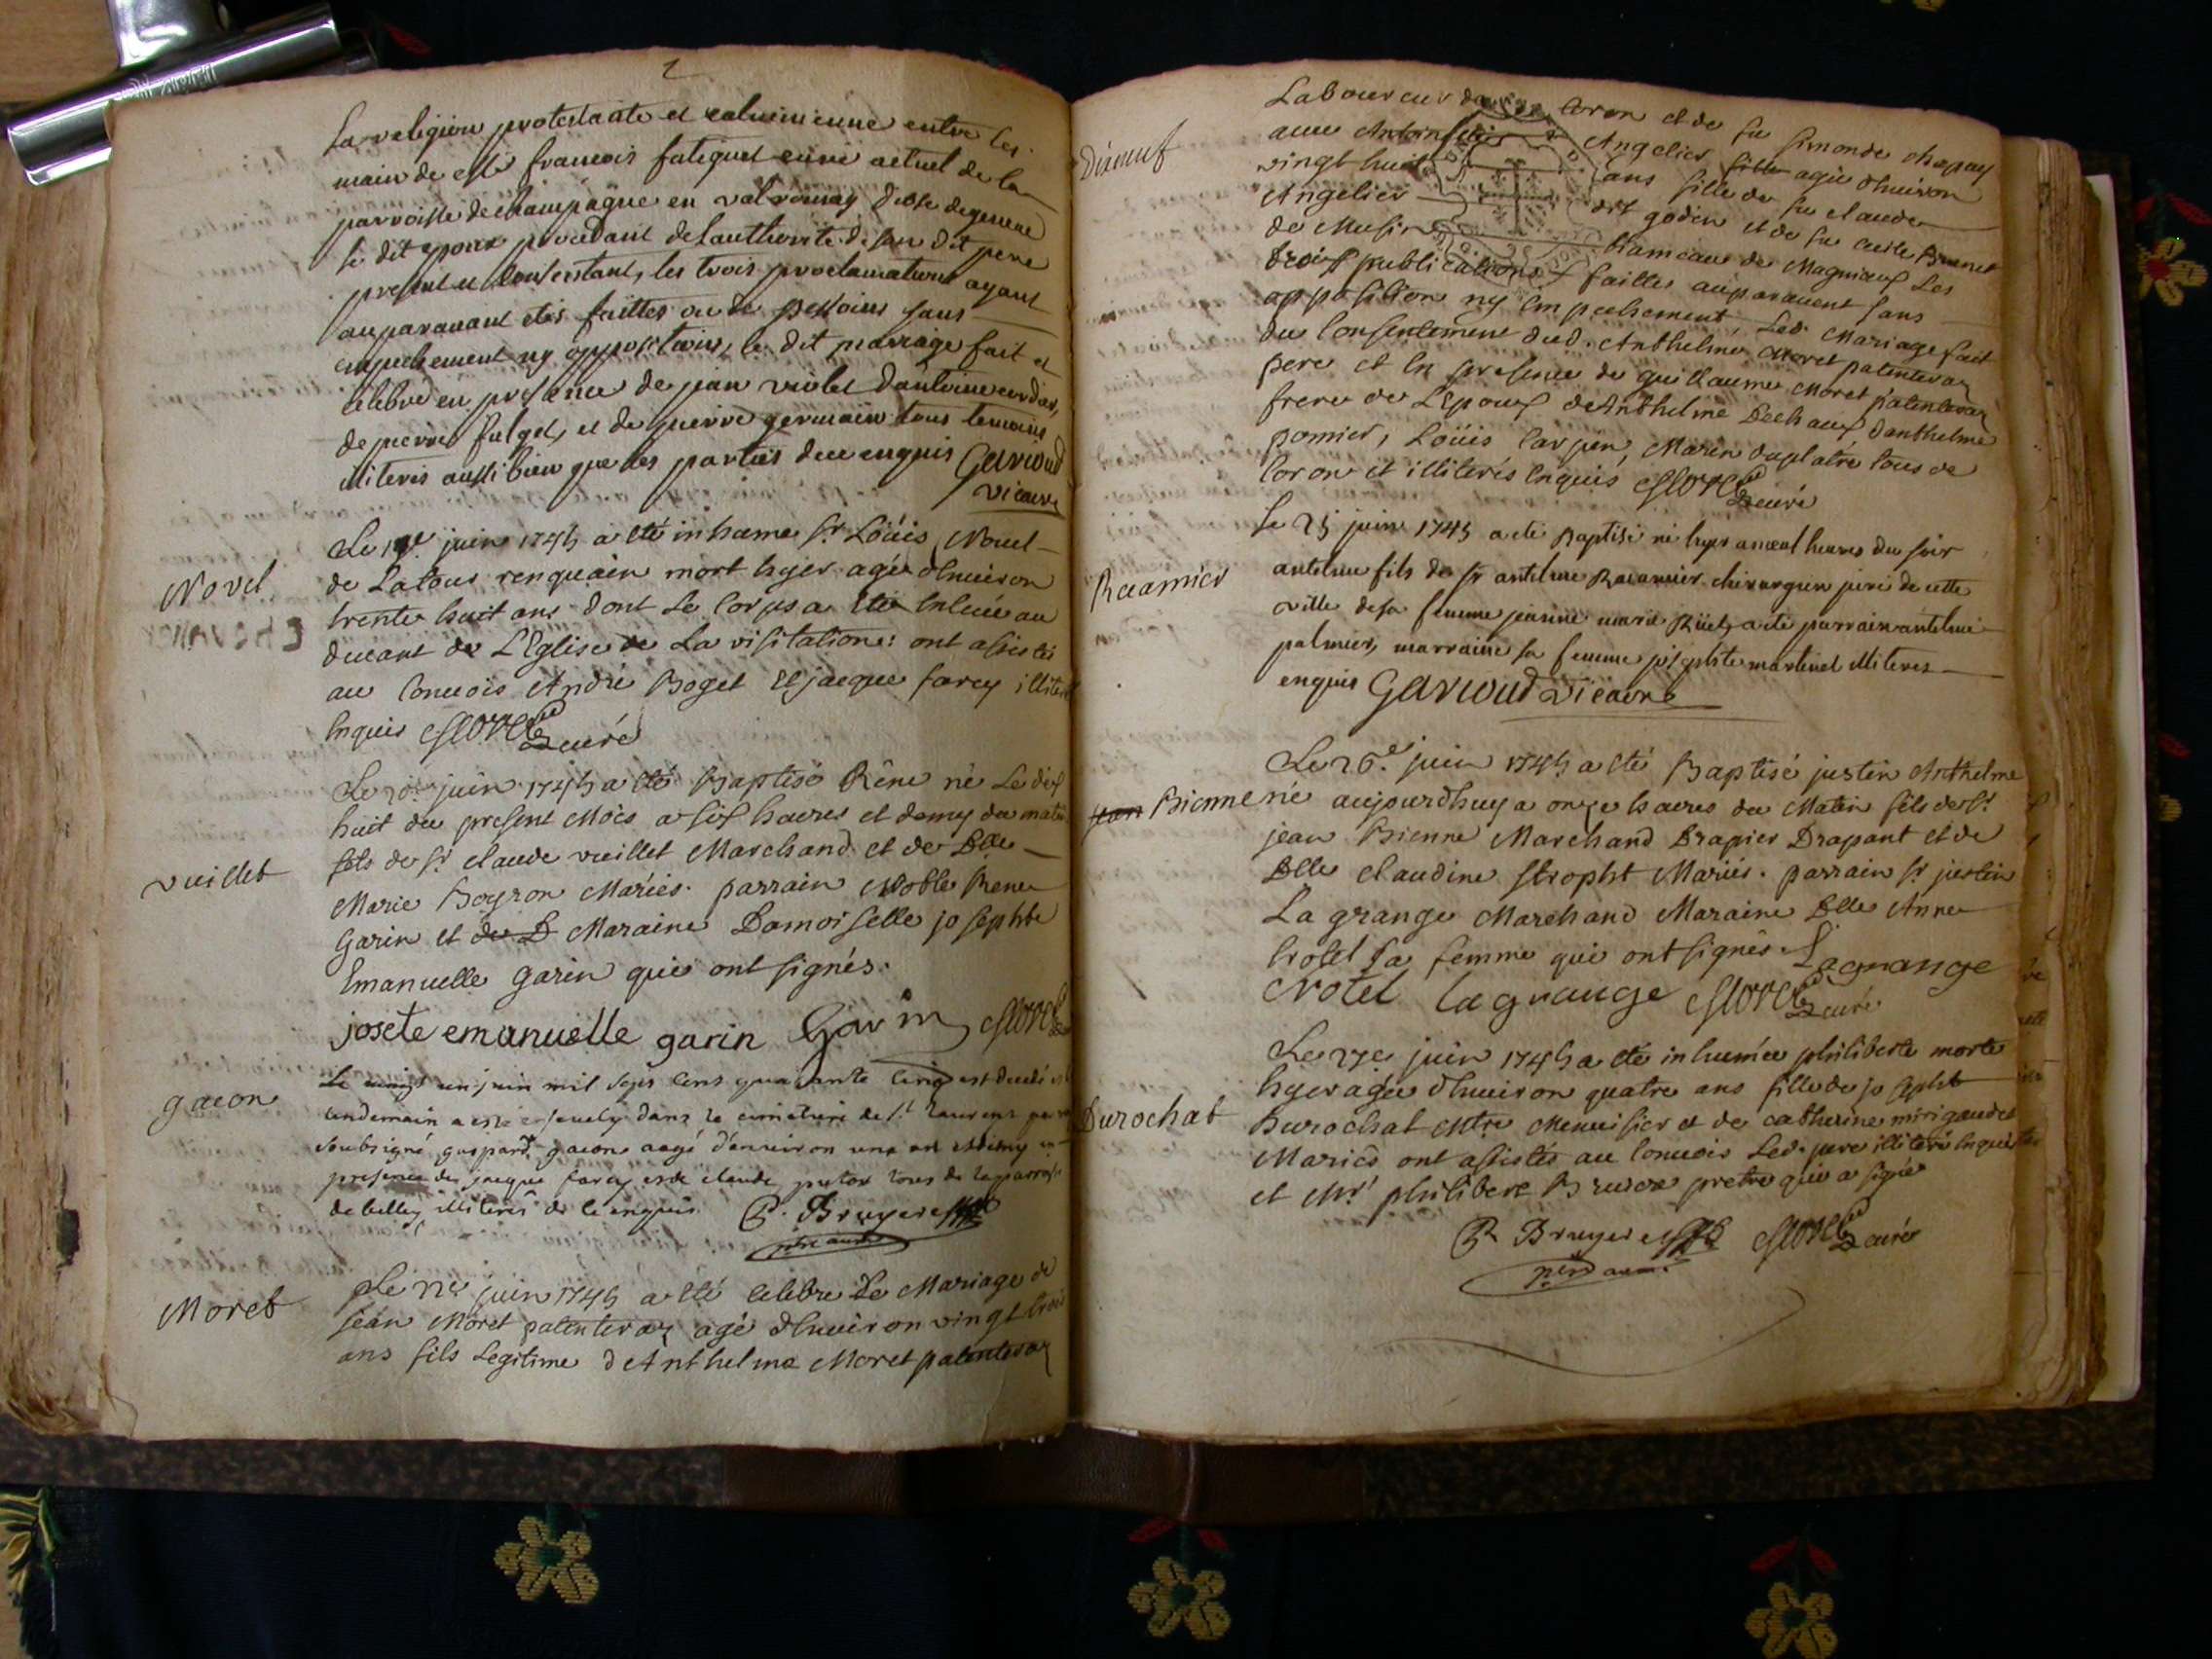 la religion protestante et calvinienne entre les
main de esse francois fatiquet curé actuel de la
parroisse de champagne en valromay
le dit epoux procedant de l'authorité de son dit pere
present et consentant, les trois proclamations ayant
auparavant etés faittes sans
empeschement ny opposition, le dit mariage fait et
celebré en presence de jean violet d'antoine
de pierre fulget, et de pierre germain tous temoins
illiteres aussi bien que les parties de ce enquis Garioud
vicaire
Novel
Le juin 1745 a eté inhumé Sr Loüis Novel
de Latour mort hyer agé d'huiron
trente huit ans dont le corps a eté
deuant de L'Eglise de La visitation: ont assistés
au conuois André Boget et jacque farcy
Enquis curé
Vuillet
Le 20e juin 1745 a eté Baptisé Réne né Le dix
huit du present Mois a six heures et demy du matin
fils de Sr claude vuillet Marchand et de Dlle
Marie Boyron Mariés. parrain Noble Rene
Garin et de D Maraine Damoiselle josephte
Emanuelle Garin qui ont signés.
josete emanuelle garin Garin
gacon
Le vingt un juin mil sept cent quarante cinq est decedé et
lendemain a esté enseuely dans le cimetiere de St Laurent par
soubsigné gaspard gacon aagé d'enuiron une an et demy en
presence de jacque farcy et de claude tous de la parroisse
de belley illiterés de ce enquis. P. Bruyere
Moret
Le 22e juin 1745 a eté celebré Le Mariage de
jean Moret patenteraz agé d'huiron vingt trois
ans fils Legitime d'Anthelme Moret patenteraz
Dixneuf
Laboureur de coron et de fu simonde chapuy
auec Antoinette Angelier fille agée d'huiron
vingt huit ans fille de fu claude
Angelier dit godin et de fu Brunet
de Musin hameau de Magnieux Les
trois publications faittes auparauent sans
opposition ny empechement, Led. Mariage fait
du Consentement dud. Anthelme Moret patenteraz
pere et En presence de guillaume Moret patenteraz
frere de L'Epoux d'Anthelme Dechaux d'anthelme
pomier, Loüis Carjin, Marin duplatre tous de
Coron et illiterés Enquis curé
Recamier
Le 25 juin 1745 a eté Baptisé né hyer a neuf heures du soir
antelme fils de Sr antelme Recamier chirurgien juré de cette
ville de sa femme jeanne marie a eté parrain antelme
palmier, marraine sa femme josephte martinel illiteres
enquis Garioud vicaire
jean Bienne
Le 26e juin 1745 a eté Baptisé justin Anthelme
né aujourdhuy a onze heures du Matin fils de Sr
jean Bienne Marchand Drapier Drapant et de
Dlle claudine Stropht Mariés. parrain Sr justin
La grange Marchand Maraine Dlle Anne
Crotel sa femme qui ont signés. Lagrange
Crotel lagrange curé
Durochat
Le 27e juin 1745 a eté inhumée philiberte morte
hyer agée d'huiron quatre ans fille de joseph
Durochat Mtre Menuisier et de catherine
Mariés ont assistés au conuois Led. pere illiteré Enquis
et Mr philibert pretre qui a signé
P Bruyere curé